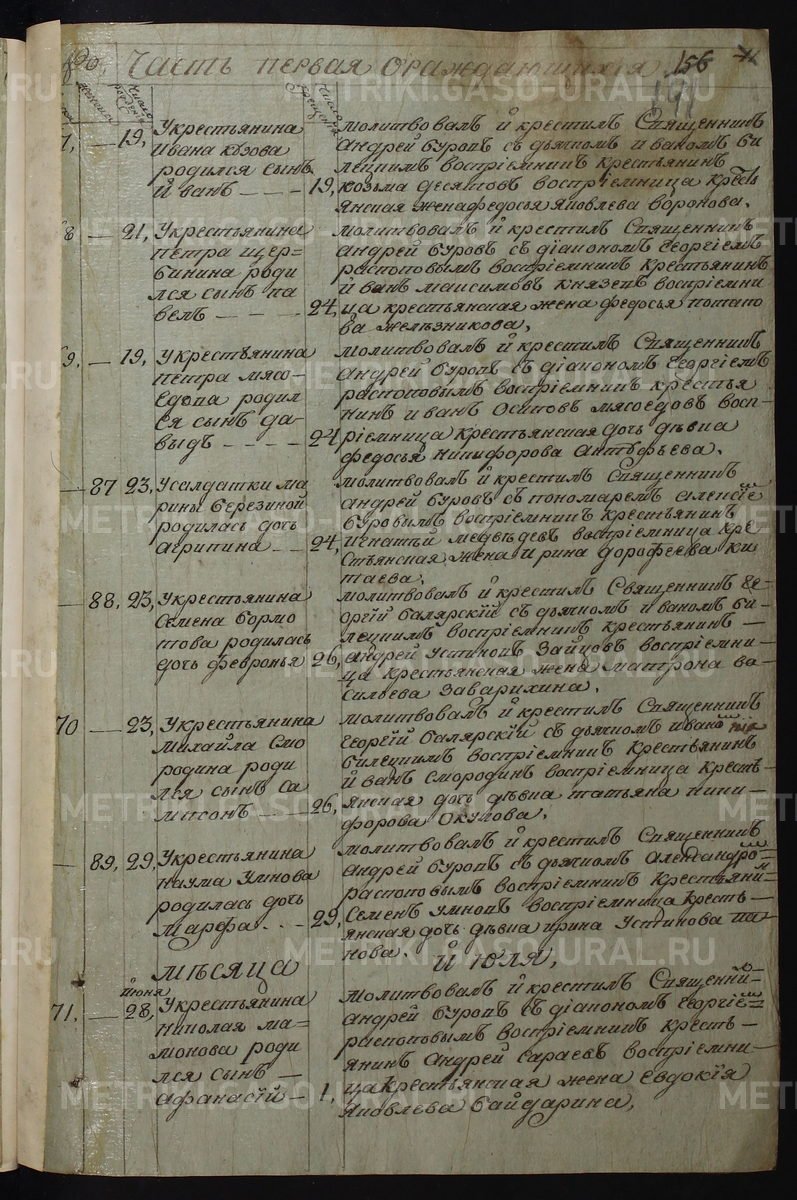 Часть первая ораждающихся 156
191
7, — 19, Укрестьянина
ивана кѣзова
родился сынъ
Иванъ — 19,
молитвовалъ и крестилъ Священникъ
Андрей Буровъ съ дьячкомъ иваномъ Би
лецкимъ воспріемникъ крестьянинъ
козьма десятовъ воспріемница кресть
янская жена федосья яковлева воронова.
8 — 21, Укрестьянина
петра щер=
бинина роди
лся сынъ па
велъ — 24,
молитвовалъ и крестилъ Священникъ
андрей Буровъ съ діакономъ Георгіемъ
распоповымъ воспріемникъ крестьянинъ
иванъ максимовъ князевъ воспріемни
ца крестьянская жена федосья потапо
ва желѣзникова,
9, — 19, Укрестьянина
петра мясо-
едова родил
ся сынъ да-
выдъ — 24
молитвовалъ и крестилъ Священникъ
Андрей Буровъ съ діакономъ Георгіемъ
распоповымъ воспріемникъ крестья
нинъ иванъ Осиповъ мясоедовъ восп-
ріемница крестьянская дочь дѣвка
федосья никифорова
— 87 23, Усалдатки ма
рины Березиной
родилась дочь
агрипина — 24,
молитвовалъ и крестилъ Священникъ
андрей Буровъ съ пономаремъ алексіе
Буровымъ воспріемникъ крестьянинъ
игнатьи медведевъ воспріемница кре
стьянская жена ирина дорофеева ки
таева.
— 88, 23, Укрестьянина
Семена бормо
това родилась
дочь февронья 26,
молитвовалъ и крестилъ Священникъ Ге-
оргій Балярскій съ дьячкомъ иваномъ Би-
лецкимъ воспріемникъ крестьянинъ —
андрей устиновъ Зайцовъ воспріемни-
ца крестьянская жена матрона ва-
сильева Заварихина.
70 — 23, Укрестьянина
михайла смо
родина роди
лся сынъ са
мпсонъ — 26,
молитвовалъ и крестилъ Священникъ
Георгій Балярскій съ дьячкомъ ивано
билецкимъ воспріемникъ крестьянинъ
иванъ смородинъ воспріемница кресть-
янская дочь дѣвка татьяна ники-
форова Окулова.
— 89, 29, Укрестьянина
наума Умнова
родилась дочь
марфа . . . 29,
молитвовалъ и крестилъ Священникъ
андрей Буровъ съ дьячкомъ Александро=
распоповымъ воспріемникъ крестьяни-
Семенъ умновъ воспріемница кресть-
янская дочь дѣвка ирина Устинова па-
нова.
мѣсяца Июля,
июня
71, — 28, Укрестьянина
николая ма-
монова роди
лся сынъ —
афанасій — 1,
молитвовалъ и крестилъ Священни-
андрей Буровъ съ діакономъ Георгіе=
распоповымъ воспріемникъ кресть-
янинъ андрей сараевъ воспріемни-
ца крестьянская жена Евдокія
яковлева байдарина,
METRIKI.GASO-URAL.RU